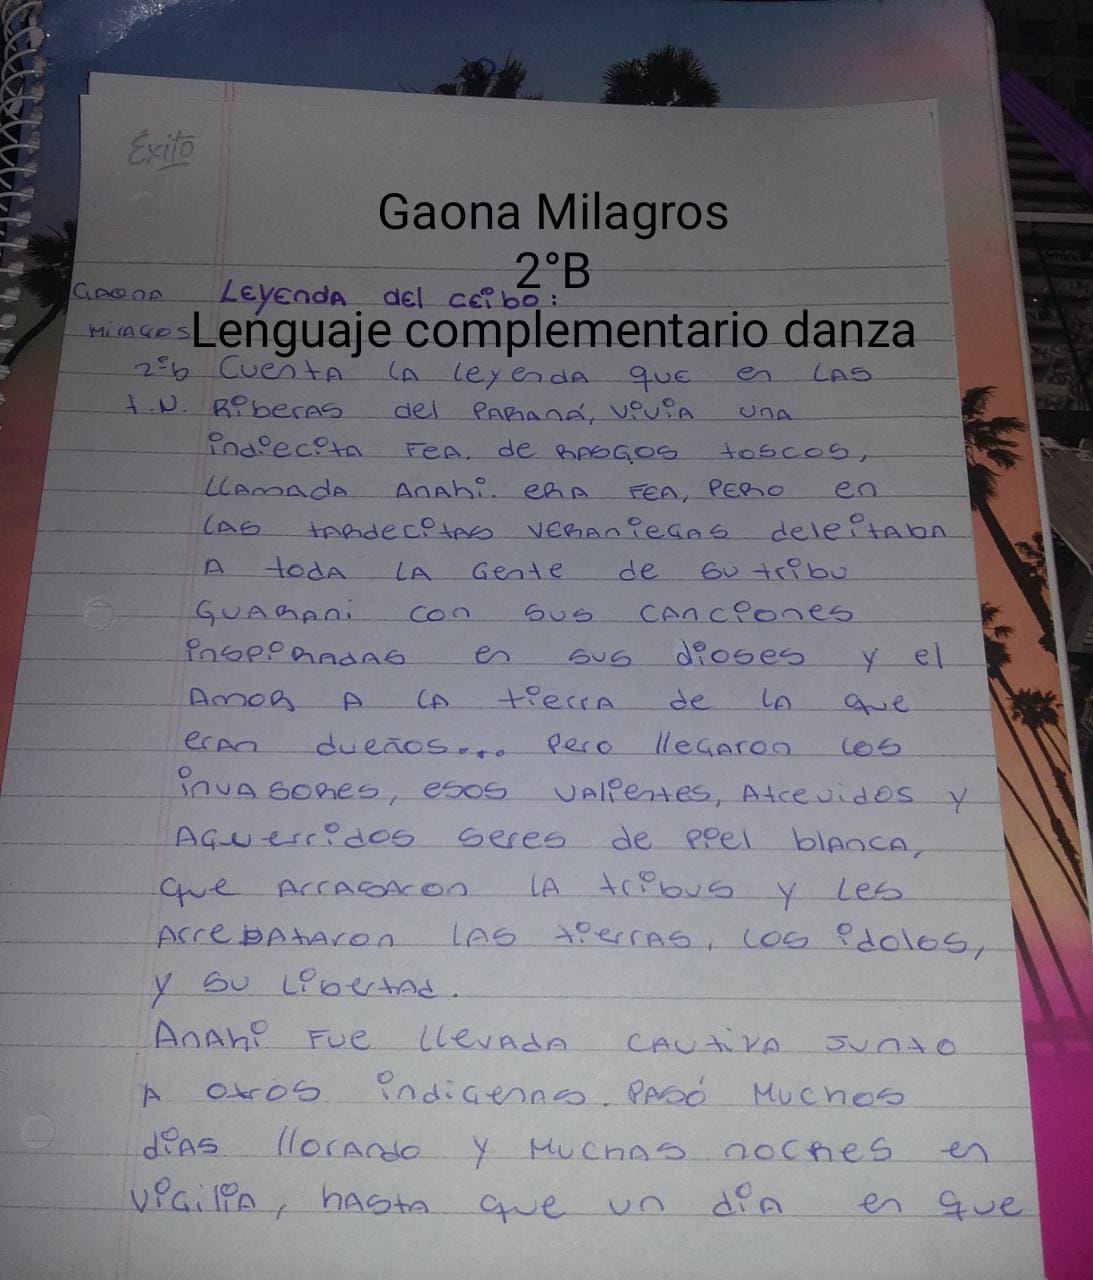 Éxito
Gaona Milagros
2°B
Gaona Leyenda del ceibo:
Milagos
Lenguaje complementario danza
2°b Cuenta la leyenda que en las
t.N. Riberas del Paraná, vivia una
indiecita fea, de rasgos toscos,
llamada Anahi. era fea, pero en
las tardecitas veraniegas deleitaba
a toda la gente de su tribu
guarani con sus canciones
inspiradas en sus dioses y el
amor a la tierra de la que
eran dueños... pero llegaron los
invasores, esos valientes, atrevidos y
aguerridos seres de piel blanca,
que arrasaron la tribus y les
arrebataron las tierras, los idolos,
y su libertad.
Anahi fue llevada cautiva junto
a otros indigenas. Pasó muchos
dias llorando y muchas noches en
vigilia, hasta que un dia en que